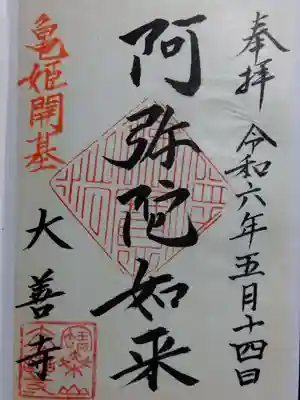 奉拝 令和六年五月十四日
阿弥陀如来
亀姫開基
大善寺